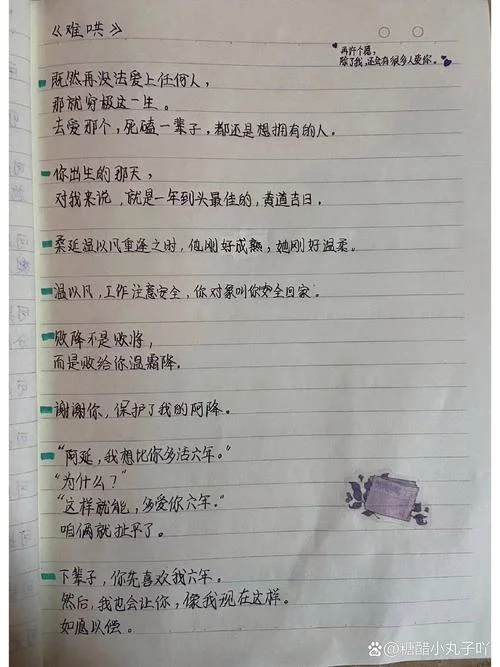 《难哄》
再许个愿,
除了我,还会有很多人爱你。
既然再没法爱上任何人,
那就穷极这一生。
去爱那个,死磕一辈子,都还是想拥有的人。
你出生的那天,
对我来说,就是一年到头最佳的,黄道吉日。
桑延温以凡重逢之时,他刚好成熟;她刚好温柔。
温以凡,工作注意安全,你对象叫你安全回家。
败降不是败将,
而是败给你温霜降。
谢谢你,保护了我的阿降。
“阿延,我想比你多活六年。”
“为什么?”
“这样就能,多爱你六年。”
咱俩就扯平了。
下辈子,你先喜欢我六年。
然后,我也会让你,像我现在这样。
如愿以偿。
@糖醋小丸子吖